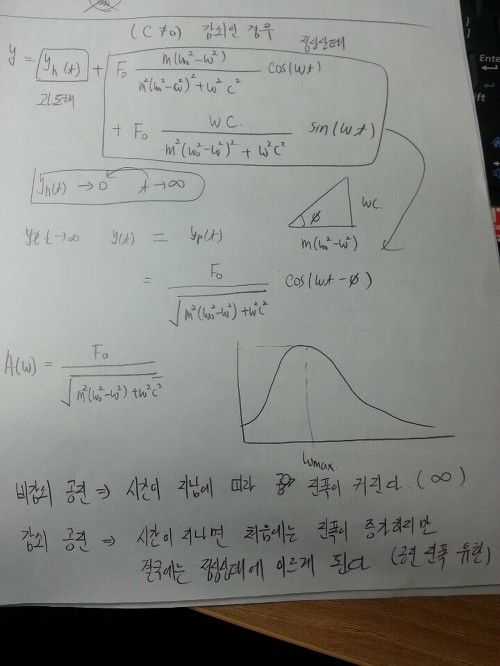 (C≠0) 감쇠인 경우
y = y_h(t) + F₀ m(ω₀²-ω²) / m²(ω₀²-ω²)²+ω²c² cos(ωt) 정상상태
과도해 + F₀ ωc / m²(ω₀²-ω²)²+ω²c² sin(ωt)
y_h(t) → 0 t→∞
ωc
φ
m(ω₀²-ω²)
t→∞ y(t) = y_p(t)
= F₀ / √m²(ω₀²-ω²)+ω²c² cos(ωt-φ)
A(ω) = F₀ / √m²(ω₀²-ω²)+ω²c²
ωmax.
비감쇠 공진 ⇒ 시간이 지남에 따라 진폭이 커진다. (∞)
감쇠 공진 ⇒ 시간이 지나면 처음에는 진폭이 증가하지만
결국에는 정상상태에 이르게 된다 (공진 진폭 유한)
Enter
ift